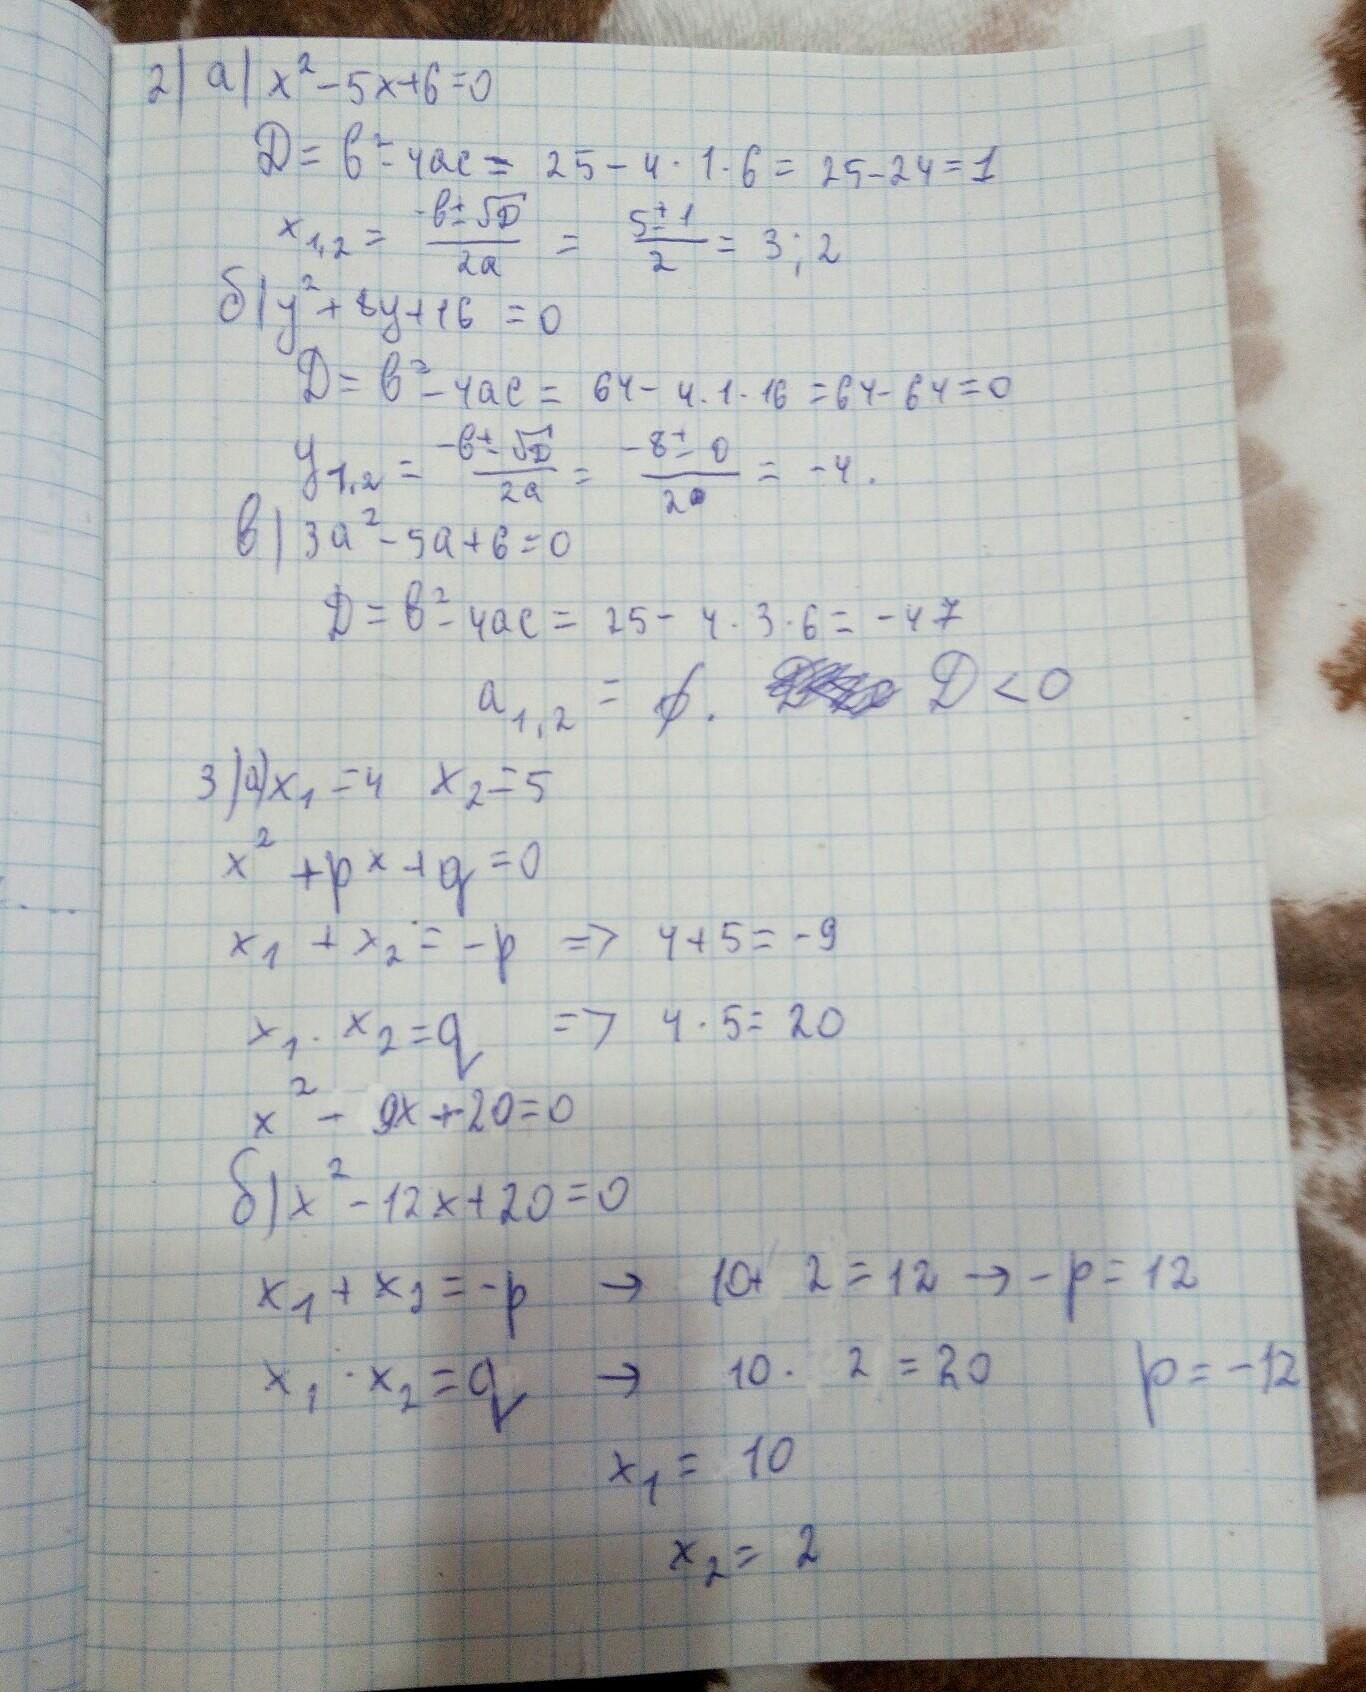 2) а) x² - 5x + 6 = 0
D = b² - 4ac = 25 - 4 · 1 · 6 = 25 - 24 = 1
x₁,₂ = (-b ± √D)/2a = (5 ± 1)/2 = 3; 2
б) y² + 8y + 16 = 0
D = b² - 4ac = 64 - 4 · 1 · 16 = 64 - 64 = 0
y₁,₂ = (-b ± √D)/2a = (-8 ± 0)/2 = -4.
в) 3a² - 5a + 6 = 0
D = b² - 4ac = 25 - 4 · 3 · 6 = -47
a₁,₂ = ∅. D < 0
3) а) x₁ = 4 x₂ = 5
x² + px + q = 0
x₁ + x₂ = -p => 4 + 5 = -9
x₁ · x₂ = q => 4 · 5 = 20
x² - 9x + 20 = 0
б) x² - 12x + 20 = 0
x₁ + x₂ = -p → 10 + 2 = 12 → -p = 12
x₁ · x₂ = q → 10 · 2 = 20 p = -12
x₁ = 10
x₂ = 2